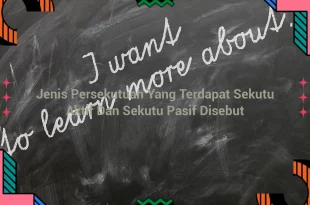 I want
to learn more about.
Jenis Persekutuan Yang Terdapat Sekutu
Aktif Dan Sekutu Pasif Disebut